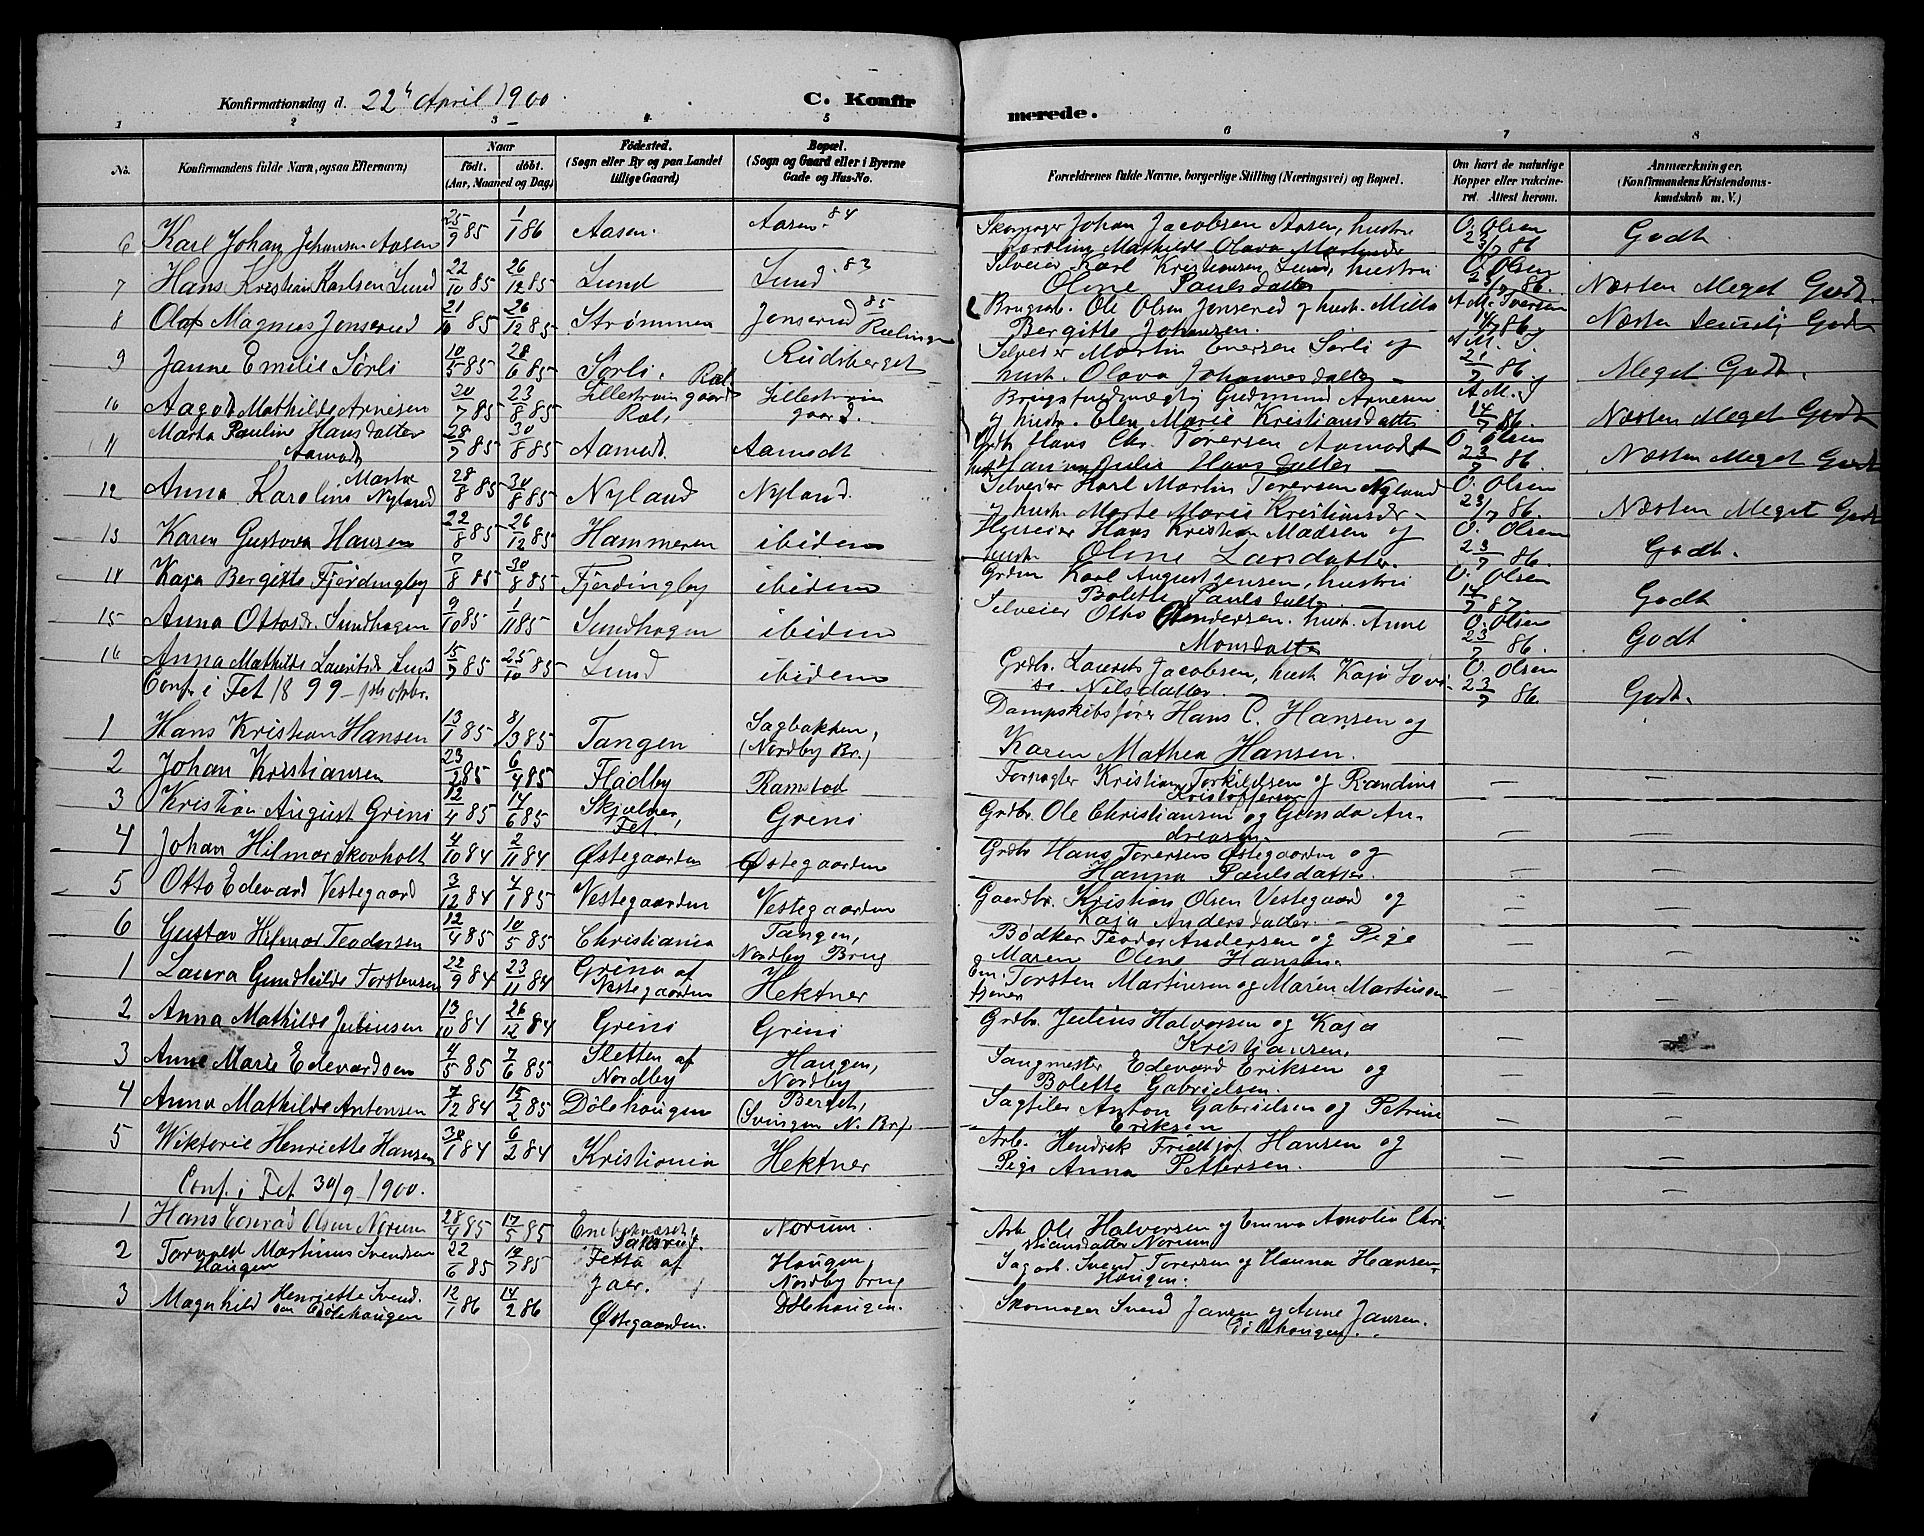 Konfirmationsdag d. 22 April 1900.
C. Konfirmerede.
1 2 3 4 5 6 7 8
No. Konfirmandens fulde Navn, ogsaa Efternavn) Naar födt. döbt. (Aar, Maaned og Dag) Födested. (Sogn eller By og paa Landet tillige Gaard) Bopæl. (Sogn og Gaard eller i Byerne Gade og Hus-No. Forældrenes fulde Navne, borgerlige Stilling (Næringsvei) og Bopæl. Om havt de naturlige Kopper eller vakcineret. Attest herom. Anmærkninger. (Konfirmandens Kristendomskundskab m. V.)
6 Karl Johan Johansen Aasen 25/9 85 1/1 86 Aasen. Aasen. 84 Skomager Johan Jacobsen Aasen, hustru Karoline Mathilde Olava O. Olsen 23/7 86 Godt
7 Hans Kristian Karlsen Lund 22/10 85 26/12 85 Lund Lund. 83 Selveier Karl Kristiansen Lund, hustru Oline Paulsdatter O. Olsen 23/7 86. Næsten Meget Godt.
8 Olaf Magnus Jenserud 21/10 85 26/12 85 Strømmen Jenserud 85 Rælingen Brugsarb. Ole Olsen Jenserud og hust. Milla Bergitte Johansen. A M. Iversen 14/7 86. Næsten Temmelig Godt
9 Janne Emilie Sørli 10/5 85 28/6 85 Sørli. Ræl. Rudsberget Selveier Martin Enersen Sørli og hust. Olava Johannesdatter A M. I 21/7 86. Meget Godt.
10 Aagot Mathilde Arnesen 20/7 85 23/8 85 Lillestrøm gaard Ræl. Lillestrøm gaard. Gudmund Arnesen og hustr. Elen Marie Kristiansdatter A M. I 14/7 86. Næsten Meget Godt
11 Marta Pauline Hansdatter Aamodt 28/7 85 30/8 85 Aamodt Aamodt Grdbr. Hans Chr. Torersen Aamodt hust. Julie Hansdatter O. Olsen 23/7 86. Næsten Meget Godt
12 Anna Karoline Marta Nyland 28/8 85 30/8 85 Nyland Nyland. Selveier Karl Martin Torersen Nyland og hust. Marte Marie Kristiansdr. O. Olsen 23/7 86. Næsten Meget Godt
13 Karen Gustava Hansen 22/8 85 26/12 85 Hammeren ibidem Huseier Hans Kristian Madsen og hustr. Oline Larsdatter. O. Olsen 23/7 86. Godt.
14 Kaja Bergitte Fjerdingby 7/8 85 30/8 85 Fjerdingby ibidem Karl August Jensen, hustru Bolette Paulsdatter O. Olsen 14/7 87. Godt
15 Anna Ottosdr. Sundhagen 9/10 85 1/11 85 Sundhagen ibidem Selveier Otto Andersen. hust. Anne Monsdatter O. Olsen 23/7 86. Godt
16 Anna Mathilde Lauritsd. Lund 15/9 85 25/10 85 Lund ibidem Grdbr. Laurits Jacobsen, hust. Kaja Lovise Nilsdatter. O. Olsen 23/7 86. Godt.
Conf. i Fet 1899 1ste oktbr.
1 Hans Kristian Hansen 13/1 85 8/3 85 Tangen Sagbakken, (Nordby Br.) Dampskibsfører Hans C. Hansen og Karen Mathea Hansen.
2 Johan Kristiansen 23/2 85 6/4 85 Fladby Ramstad Forpagter Kristian Torkildsen og Randine Kristoffersen —
3 Kristian August Greni 12/4 85 14/6 85 Skjatner, Fet Greni Grdbr. Ole Christiansen og Gunda Andreasen. —
4 Johan Hilmar Skovholt 4/10 84 2/11 84 Østegaarden Østegaarden Grdbr. Hans Torersen Østegaarden og Hanna Paulsdatter. —
5 Otto Edevard Vestegaard 3/12 84 4/1 85 Vestegaarden Vestegaarden Gaardbr. Kristian Olsen Vestegaard og Kaja Andersdatter. —
6 Gustav Hilmar Teodorsen 12/4 85 10/5 85 Christiania Tangen, Nordby Brug Bødker Teodor Andersen og Pige Maren Oline Hansen. —
1 Laura Gundhilde Torstensen 22/9 84 23/11 84 Grina af Vestegaarden Hektner Torsten Martinsen og Maren Martinsen —
2 Anna Mathilde Juliusen 13/10 84 26/12 84 Greni Greni Grdbr. Julius Halvorsen og Kaja Kristiansen. —
3 Anne Marie Edevardsen 4/5 85 7/6 85 Sletten af Nordby Haugen, Nordby Sangmester Edevard Eriksen og Bolette Gabrielsen. —
4 Anna Mathilde Antonsen 7/12 84 15/2 85 Dølehaugen Berget, (Svingen N. Br) Sagfiler Anton Gabrielsen og Petrine Eriksen —
5 Wiktorie Henriette Hansen 30/1 84 6/2 84 Kristiania Hektner Arb. Hendrik Fridtjof Hansen og Pige Anna Pettersen. —
Conf. i Fet 30/9 1900.
1 Hans Conrad Olsen Norum 28/4 85 17/5 85 Enebaknæset, Norum. Arb. Ole Halvorsen og Emma Amalia Christiansdatter Norum
2 Torvald Martinus Svendsen Haugen 22/6 85 19/7 85 Fetta af Jaer. Haugen, Nordby brug Sagarb. Svend Torersen og Hanna Hansen, Haugen.
3 Magnhild Henriette Svendsen Dølehaugen 12/1 86 14/2 86 Østegaarden. Dølehaugen. Skomager Svend Jansen og Anne Jansen. Dølehaugen.